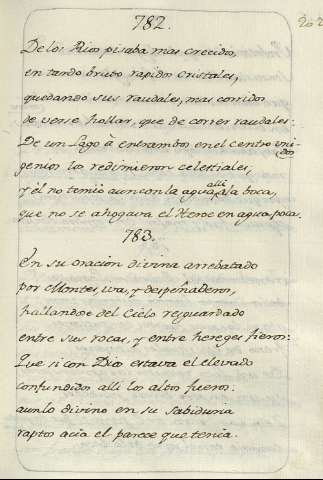 202
782.
De los Rios pisaba mas crecidos,
en tardo bruto rapidos cristales,
quedando sus raudales, mas corridos
de verse hollar, que de correr raudales:
De un Lago à entrambos en el centro unidos
genios los redimieron celestiales,
y él no temio aun con la agua allí a la boca,
que no se ahogava el Heroe en agua poca.
783.
En su oracion divina arrebatado
por Montes, iva, y despeñaderos,
hallandose del Cielo resguardado
entre sus rocas, y entre hereges fieros:
Que si con Dios estava el elevado
confundidos alli los altos fueros:
aun lo divino en su Sabiduria
raptos acia el parece que tenia.